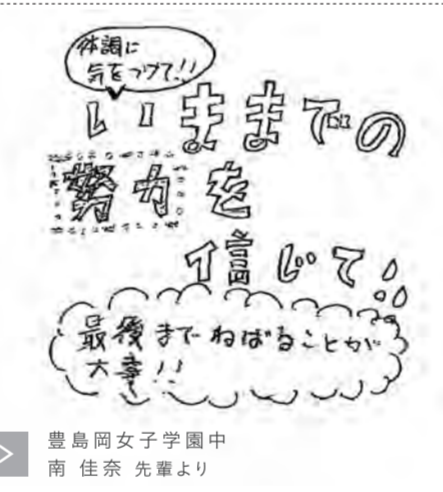 体調に
気をつけて!!
いままでの
努力を
信じて!!
最後まで ねばることが
大事!!
豊島岡女子学園中
南 佳奈 先輩より